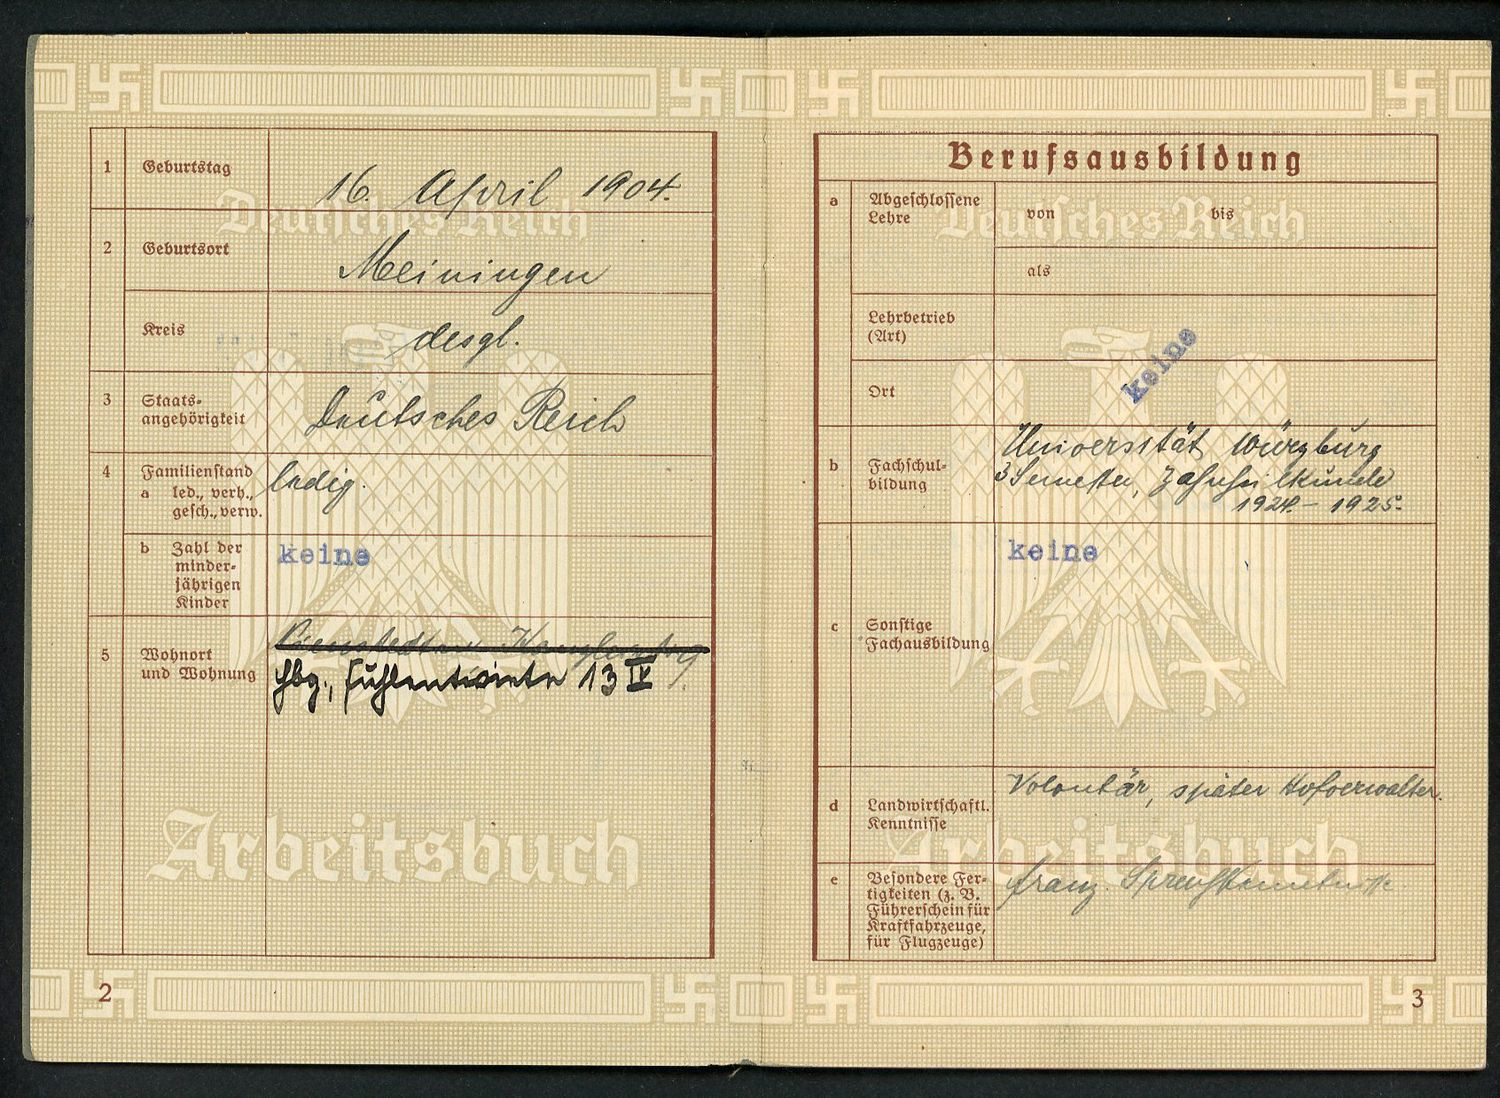 Deutsches Reich
1 Geburtstag 16. April 1904.
2 Geburtsort Meiningen
Kreis desgl.
3 Staats-
angehörigkeit Deutsches Reich
4 Familienstand
a led., verh., ledig.
gesch., verw.
b Zahl der keine
minder-
jährigen
Kinder
5 Wohnort
und Wohnung Hbg., Fuhlentwiete 13 IV
Arbeitsbuch
2
Berufsausbildung
Deutsches Reich
a Abgeschlossene
Lehre von bis
als
Lehrbetrieb
(Art)
keine
Ort
b Fachschul-
bildung
Universität Würzburg
3 Semester, Zahnheilkunde
1924. – 1925.
keine
c Sonstige
Fachausbildung
Volontär, später Hofverwalter.
d Landwirtschaftl.
Kenntnisse
Arbeitsbuch
e Besondere Fer-
tigkeiten (z. B.
Führerschein für
Kraftfahrzeuge,
für Flugzeuge)
franz. Sprachkenntnisse
3